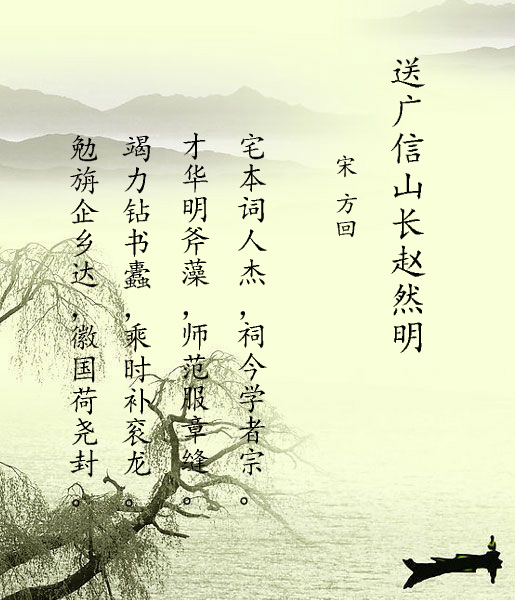 送广信山长赵然明
宋 方回
宅本词人杰，祠今学者宗。
才华明斧藻，师范服章缝。
竭力钻书蠹，乘时补衮龙。
勉旃企乡达，徽国荷尧封。